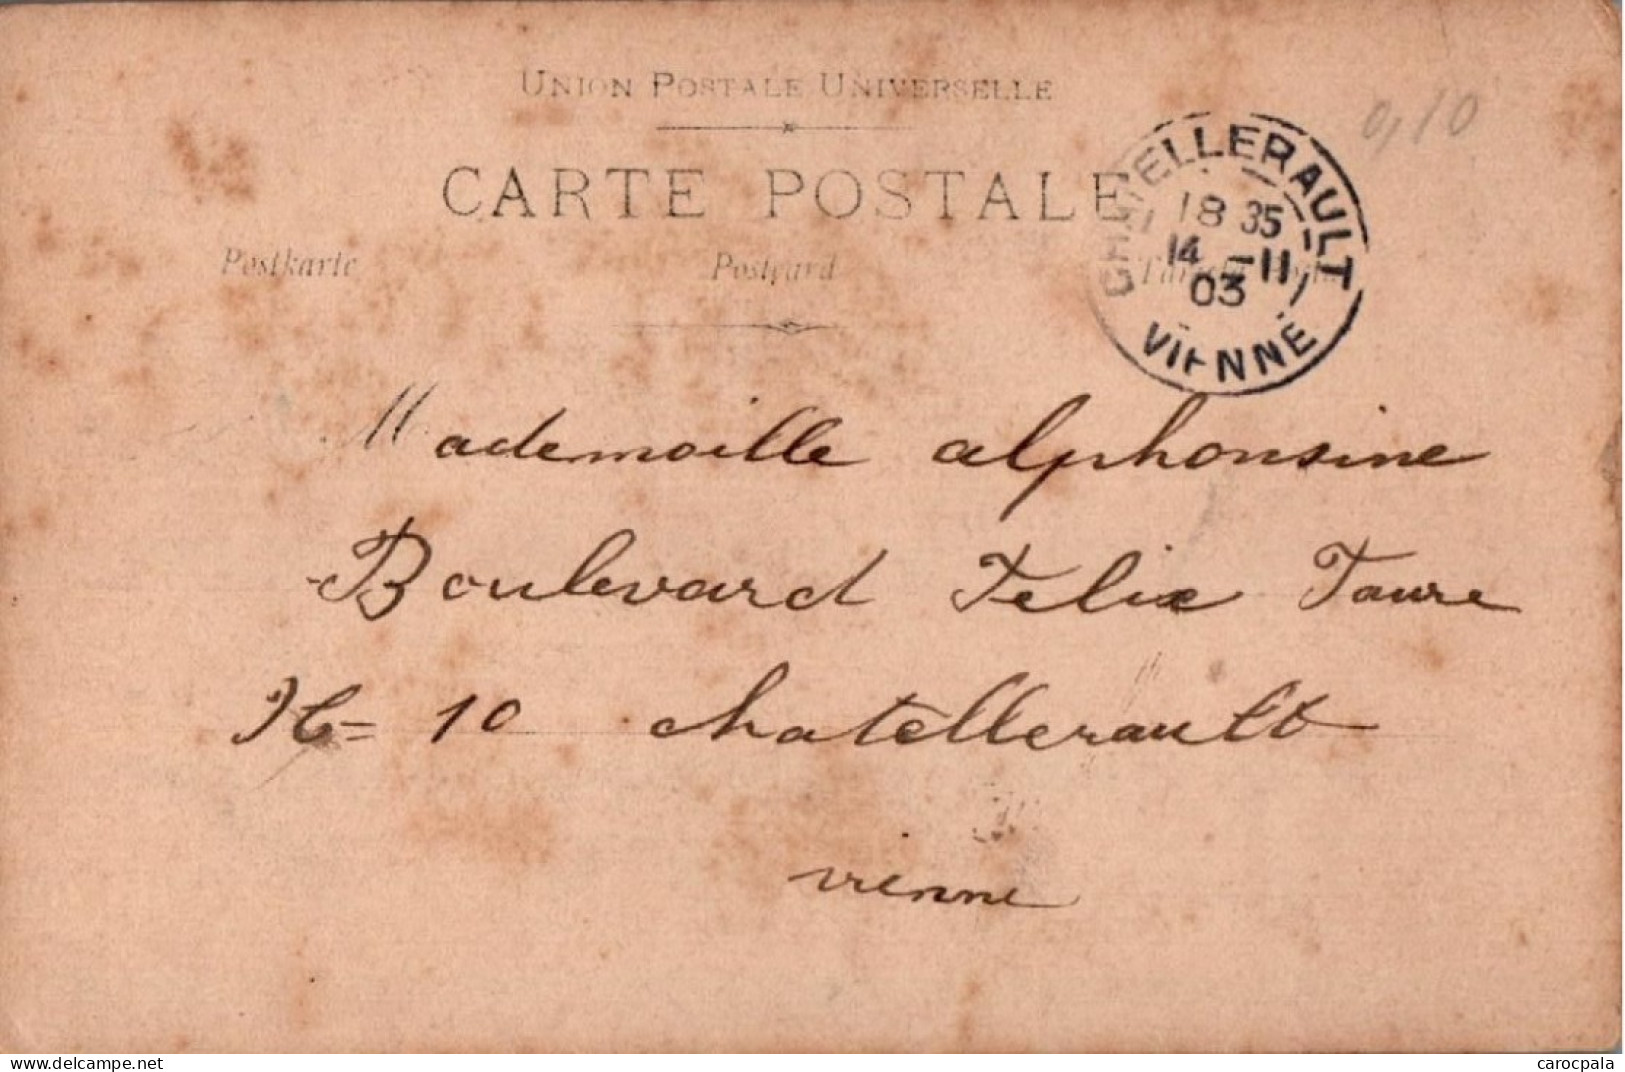 UNION POSTALE UNIVERSELLE
0,10
CARTE POSTALE
Postkarte Postcard
CHATELLERAULT
18 35
14 -11
03
VIENNE
Mademoille alphonsine
Boulevard Felix Faure
N= 10 chatellerault
vienne
www.delcampe.net
carocpala